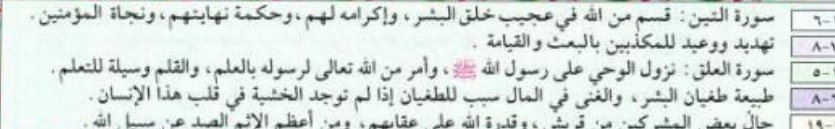 ٦- سورة التين: قسم من الله في عجيب خلق البشر، وإكرامه لهم، وحكمة نهايتهم، ونجاة المؤمنين.
٨- تهديد ووعيد للمكذبين بالبعث والقيامة.
٥- سورة العلق: نزول الوحي على رسول الله ﷺ، وأمر من الله تعالى لرسوله بالعلم، والقلم وسيلة للتعلم.
٨- طبيعة طغيان البشر، والغنى في المال سبب للطغيان إذا لم توجد الخشية في قلب هذا الإنسان.
١٩- حال بعض المشركين من قريش، وقدرة الله على عقابهم، ومن أعظم الإثم الصد عن سبيل الله.